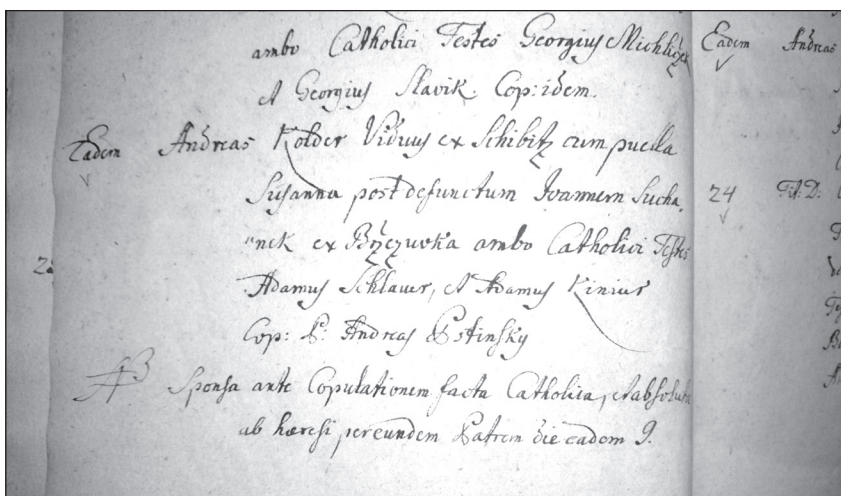 ambo Catholici Testes Georgius Michliczek
et Georgius Slavik. Cop: idem.
Eadem Andreas Kolder Viduus ex Schibitz cum puella
Susanna post defunctum Joannem Sucha,
"nek ex Brzezuvka ambo Catholici Testes
Adamus Schlauer, et Adamus Kinius
Cop: P: Andreas Pstinsky
Sponsa ante Copulationem facta Catholica, et absoluta
ab hæresi per eundem Patrem die eadem 9.
Eadem Andreas
24